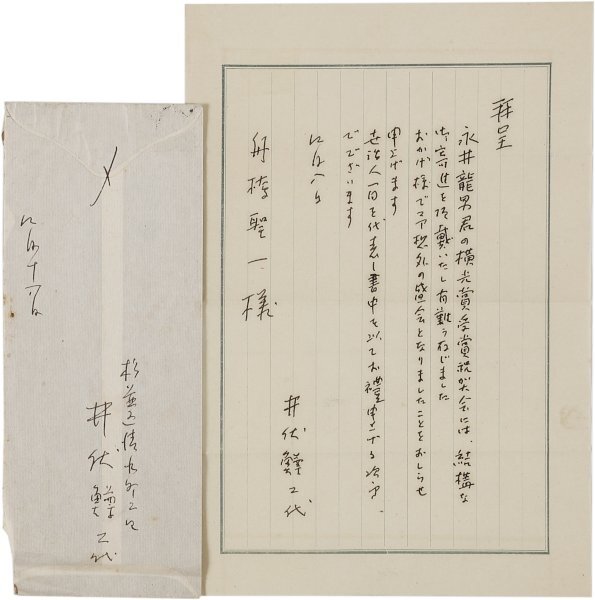 拝呈
永井龍男君の横光賞受賞祝賀大会には、結構な
御寄進を頂戴いたし有難う存じました
おかげ様で予想外の盛会となりましたことをおしらせ
申上げます
世話人一同を代表し書中を以てお禮申上げる次第
でございます
月八日
井伏鱒二代
舟橋聖一様
〆
杉並区清水
井伏鱒二代